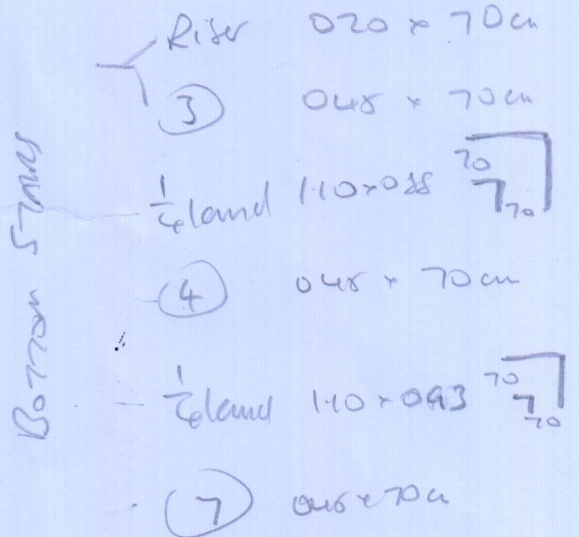 BOTTOM STAIRS
Riser 020 x 70cm
3 048 x 70cm
1/4 land 1.10 x 088 70 70
4 048 x 70cm
1/4 land 1.10 x 093 70 70
7 048 x 70c